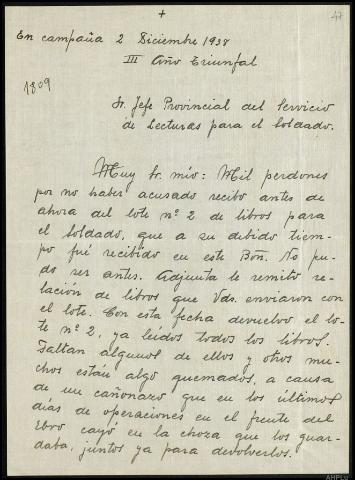 +
47
En campaña 2 Diciembre 1938
III Año Triunfal
1809
Sr. Jefe Provincial del Servicio
de Lecturas para el Soldado.
Muy Sr. mío: Mil perdones
por no haber acusado recibo antes de
ahora del lote nº 2 de libros para
el soldado, que a su debido tiem-
po fué recibido en este Bón. No pu-
do ser antes. Adjunta le remito re-
lación de libros que Vds. enviaron con
el lote. Con esta fecha devuelvo el lo-
te nº 2, ya leídos todos los libros.
Faltan algunos de ellos y otros mu-
chos están algo quemados, a causa
de un cañonazo que en los últimos
días de operaciones en el frente del
Ebro cayó en la choza que los guar-
daba, juntos ya para devolverlos.
AHPLU